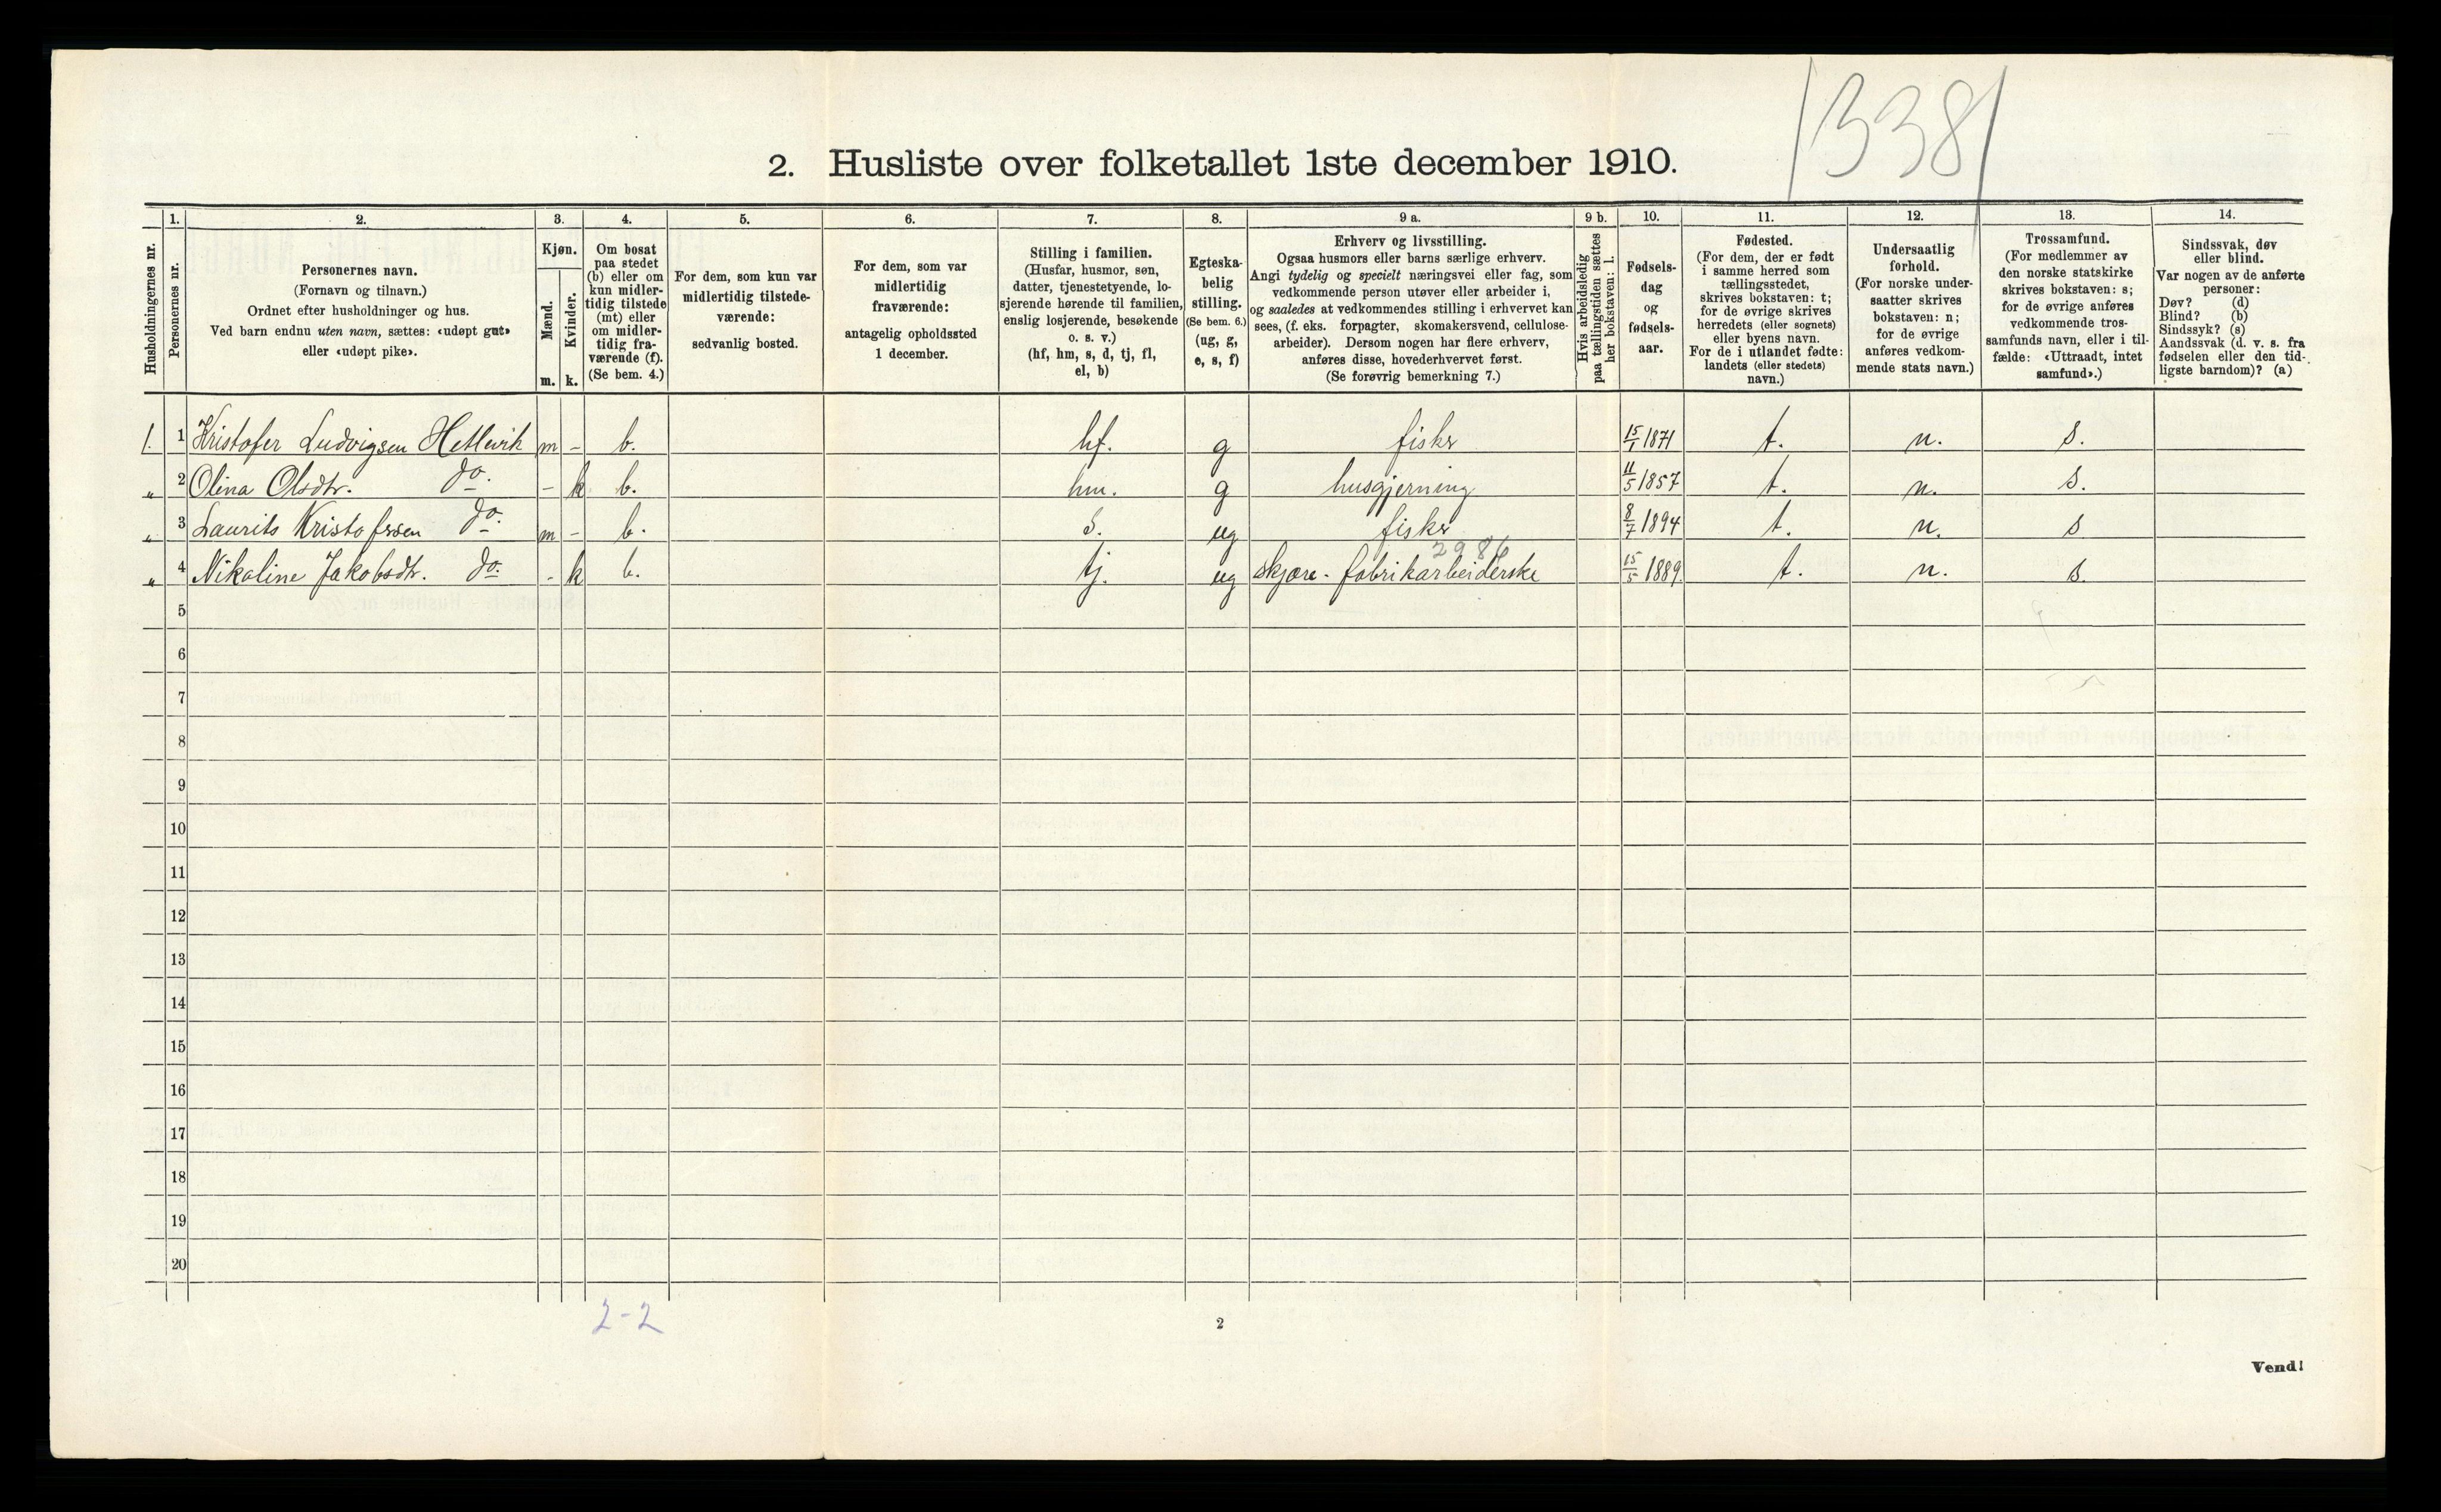 1338
2. Husliste over folketallet 1ste december 1910.
1. 2. 3. 4. 5. 6. 7. 8. 9 a. 9 b. 10. 11. 12. 13. 14.
Husholdningernes nr.
Personernes nr.
Personernes navn.
(Fornavn og tilnavn.)
Ordnet efter husholdninger og hus.
Ved barn endnu uten navn, sættes: «udøpt gut»
eller «udøpt pike».
Kjøn.
Mænd.
Kvinder.
m. k.
Om bosat
paa stedet
(b) eller om
kun midler-
tidig tilstede
(mt) eller
om midler-
tidig fra-
værende (f).
(Se bem. 4.)
For dem, som kun var
midlertidig tilstede-
værende:
sedvanlig bosted.
For dem, som var
midlertidig
fraværende:
antagelig opholdssted
1 december.
Stilling i familien.
(Husfar, husmor, søn,
datter, tjenestetyende, lo-
sjerende hørende til familien,
enslig losjerende, besøkende
o. s. v.)
(hf, hm, s, d, tj, fl,
el, b)
Egteska-
belig
stilling.
(Se bem. 6.)
(ug, g,
e, s, f)
Erhverv og livsstilling.
Ogsaa husmors eller barns særlige erhverv.
Angi tydelig og specielt næringsvei eller fag, som
vedkommende person utøver eller arbeider i,
og saaledes at vedkommendes stilling i erhvervet kan
sees, (f. eks. forpagter, skomakersvend, cellulose-
arbeider). Dersom nogen har flere erhverv,
anføres disse, hovederhvervet først.
(Se forøvrig bemerkning 7.)
Hvis arbeidsledig
paa tællingstiden sættes
her bokstaven: l.
Fødsels-
dag
og
fødsels-
aar.
Fødested.
(For dem, der er født
i samme herred som
tællingsstedet,
skrives bokstaven: t;
for de øvrige skrives
herredets (eller sognets)
eller byens navn.
For de i utlandet fødte:
landets (eller stedets)
navn.)
Undersaatlig
forhold.
(For norske under-
saatter skrives
bokstaven: n;
for de øvrige
anføres vedkom-
mende stats navn.)
Trossamfund.
(For medlemmer av
den norske statskirke
skrives bokstaven: s;
for de øvrige anføres
vedkommende tros-
samfunds navn, eller i til-
fælde: «Uttraadt, intet
samfund».)
Sindssvak, døv
eller blind.
Var nogen av de anførte
personer:
Døv? (d)
Blind? (b)
Sindssyk? (s)
Aandssvak (d. v. s. fra
fødselen eller den tid-
ligste barndom)? (a)
1. 1 Kristofer Ludvigsen Hetlevik m - b. hf. g fisker 15/1 1871 t. n. s.
" 2 Olina Olsdtr. do. - k b. hm. g husgjerning 11/5 1857 t. n. s.
" 3 Laurits Kristofersen do. m - b. s. ug fisker 8/7 1894 t. n. s
2986
" 4 Nikoline Jakobsdtr. do. - k b. tj. ug skjære-fabrikarbeiderske 15/5 1889. t. n. s.
5
6
7
8
9
10
11
12
13
14
15
16
17
18
19
20
2-2
2
Vend!